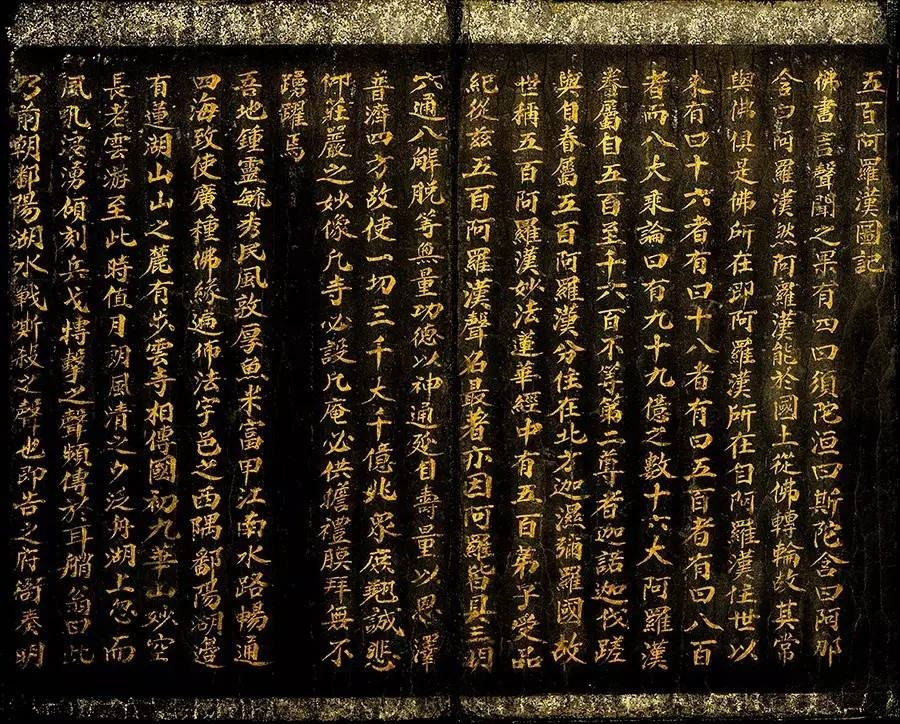 五百阿羅漢圖記
佛書言聲聞之果有四曰須陀洹曰斯陀含曰阿那
含曰阿羅漢然阿羅漢能於國土從佛轉輪故其常
與佛俱是佛所在即阿羅漢所在自阿羅漢住世以
來有曰十六者有曰十八者有曰五百者有曰八百
者而八大乘論曰有九十九億之數十六大阿羅漢
眷屬自五百至千六百不等第二尊者迦諾迦伐蹉
與自眷屬五百阿羅漢分住在北方迦濕彌羅國故
世稱五百阿羅漢妙法蓮華經中有五百弟子受品
紀從茲五百阿羅漢聲名最著亦因阿羅皆具三明
六通八解脫等無量功德以神通延自壽量以恩澤
普濟四方故使一切三千大千億兆眾庶翹誠悲
仰莊嚴之妙像凡寺必設凡庵必供瞻禮膜拜無不
踴躍焉
吾地鍾靈毓秀民風敦厚魚米富甲江南水路暢通
四海致使廣種佛緣遍佈法宇邑之西隅鄱陽湖邊
有蓮湖山山之麓有步雲寺相傳國初九華山妙空
長老雲游至此時值月朗風清之夕泛舟湖上忽而
風吼浪湧傾刻兵戈搏擊之聲頻傳於耳艄翁曰此
乃前朝鄱陽湖水戰廝殺之聲也即告之府衙奏明